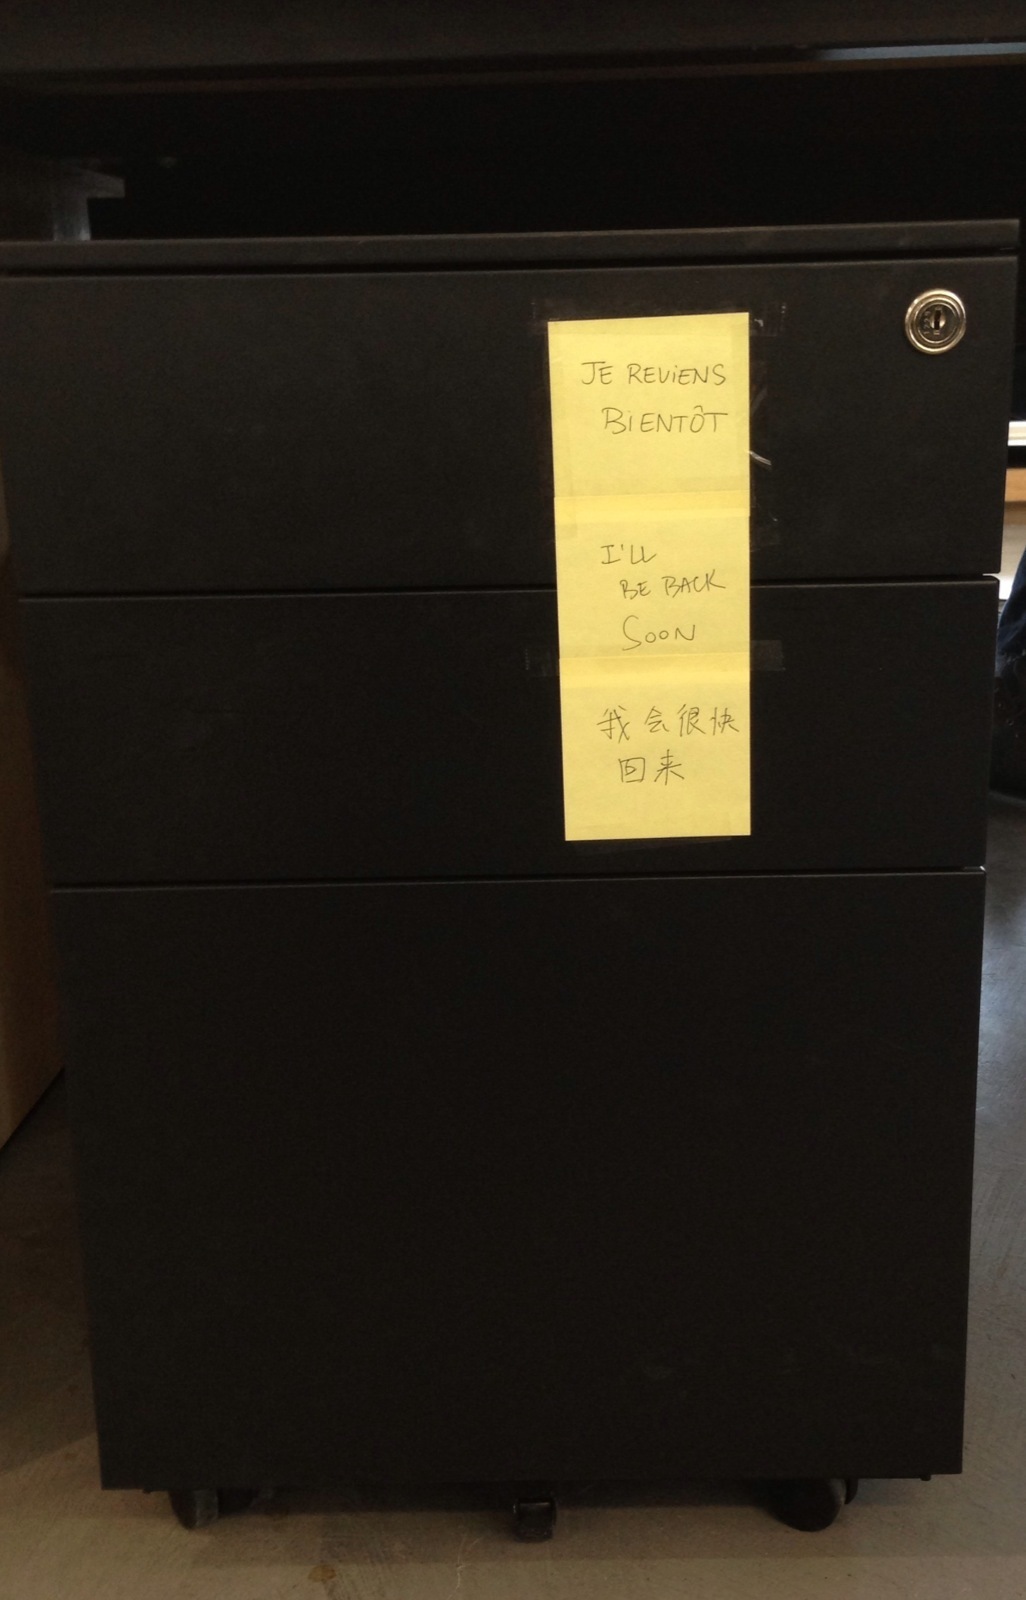 JE REVIENS
BIENTÔT
I'LL
BE BACK
SOON
我会很快
回来